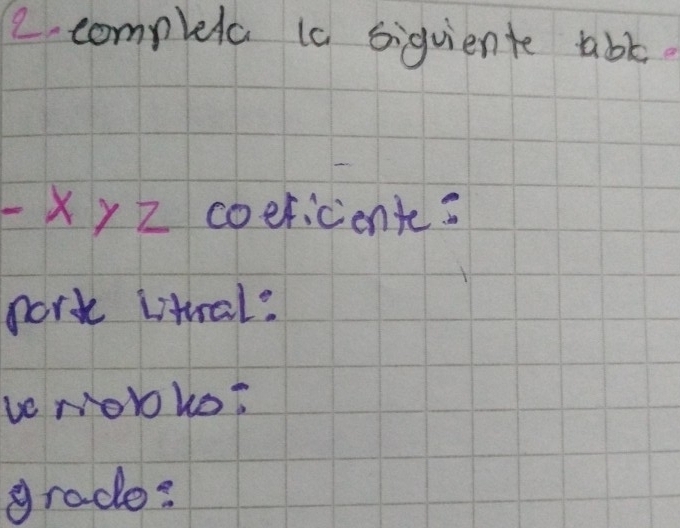 2. completa la siguiente tabla.
- X Y Z coeficiente:
parte Literal:
variables:
grado: